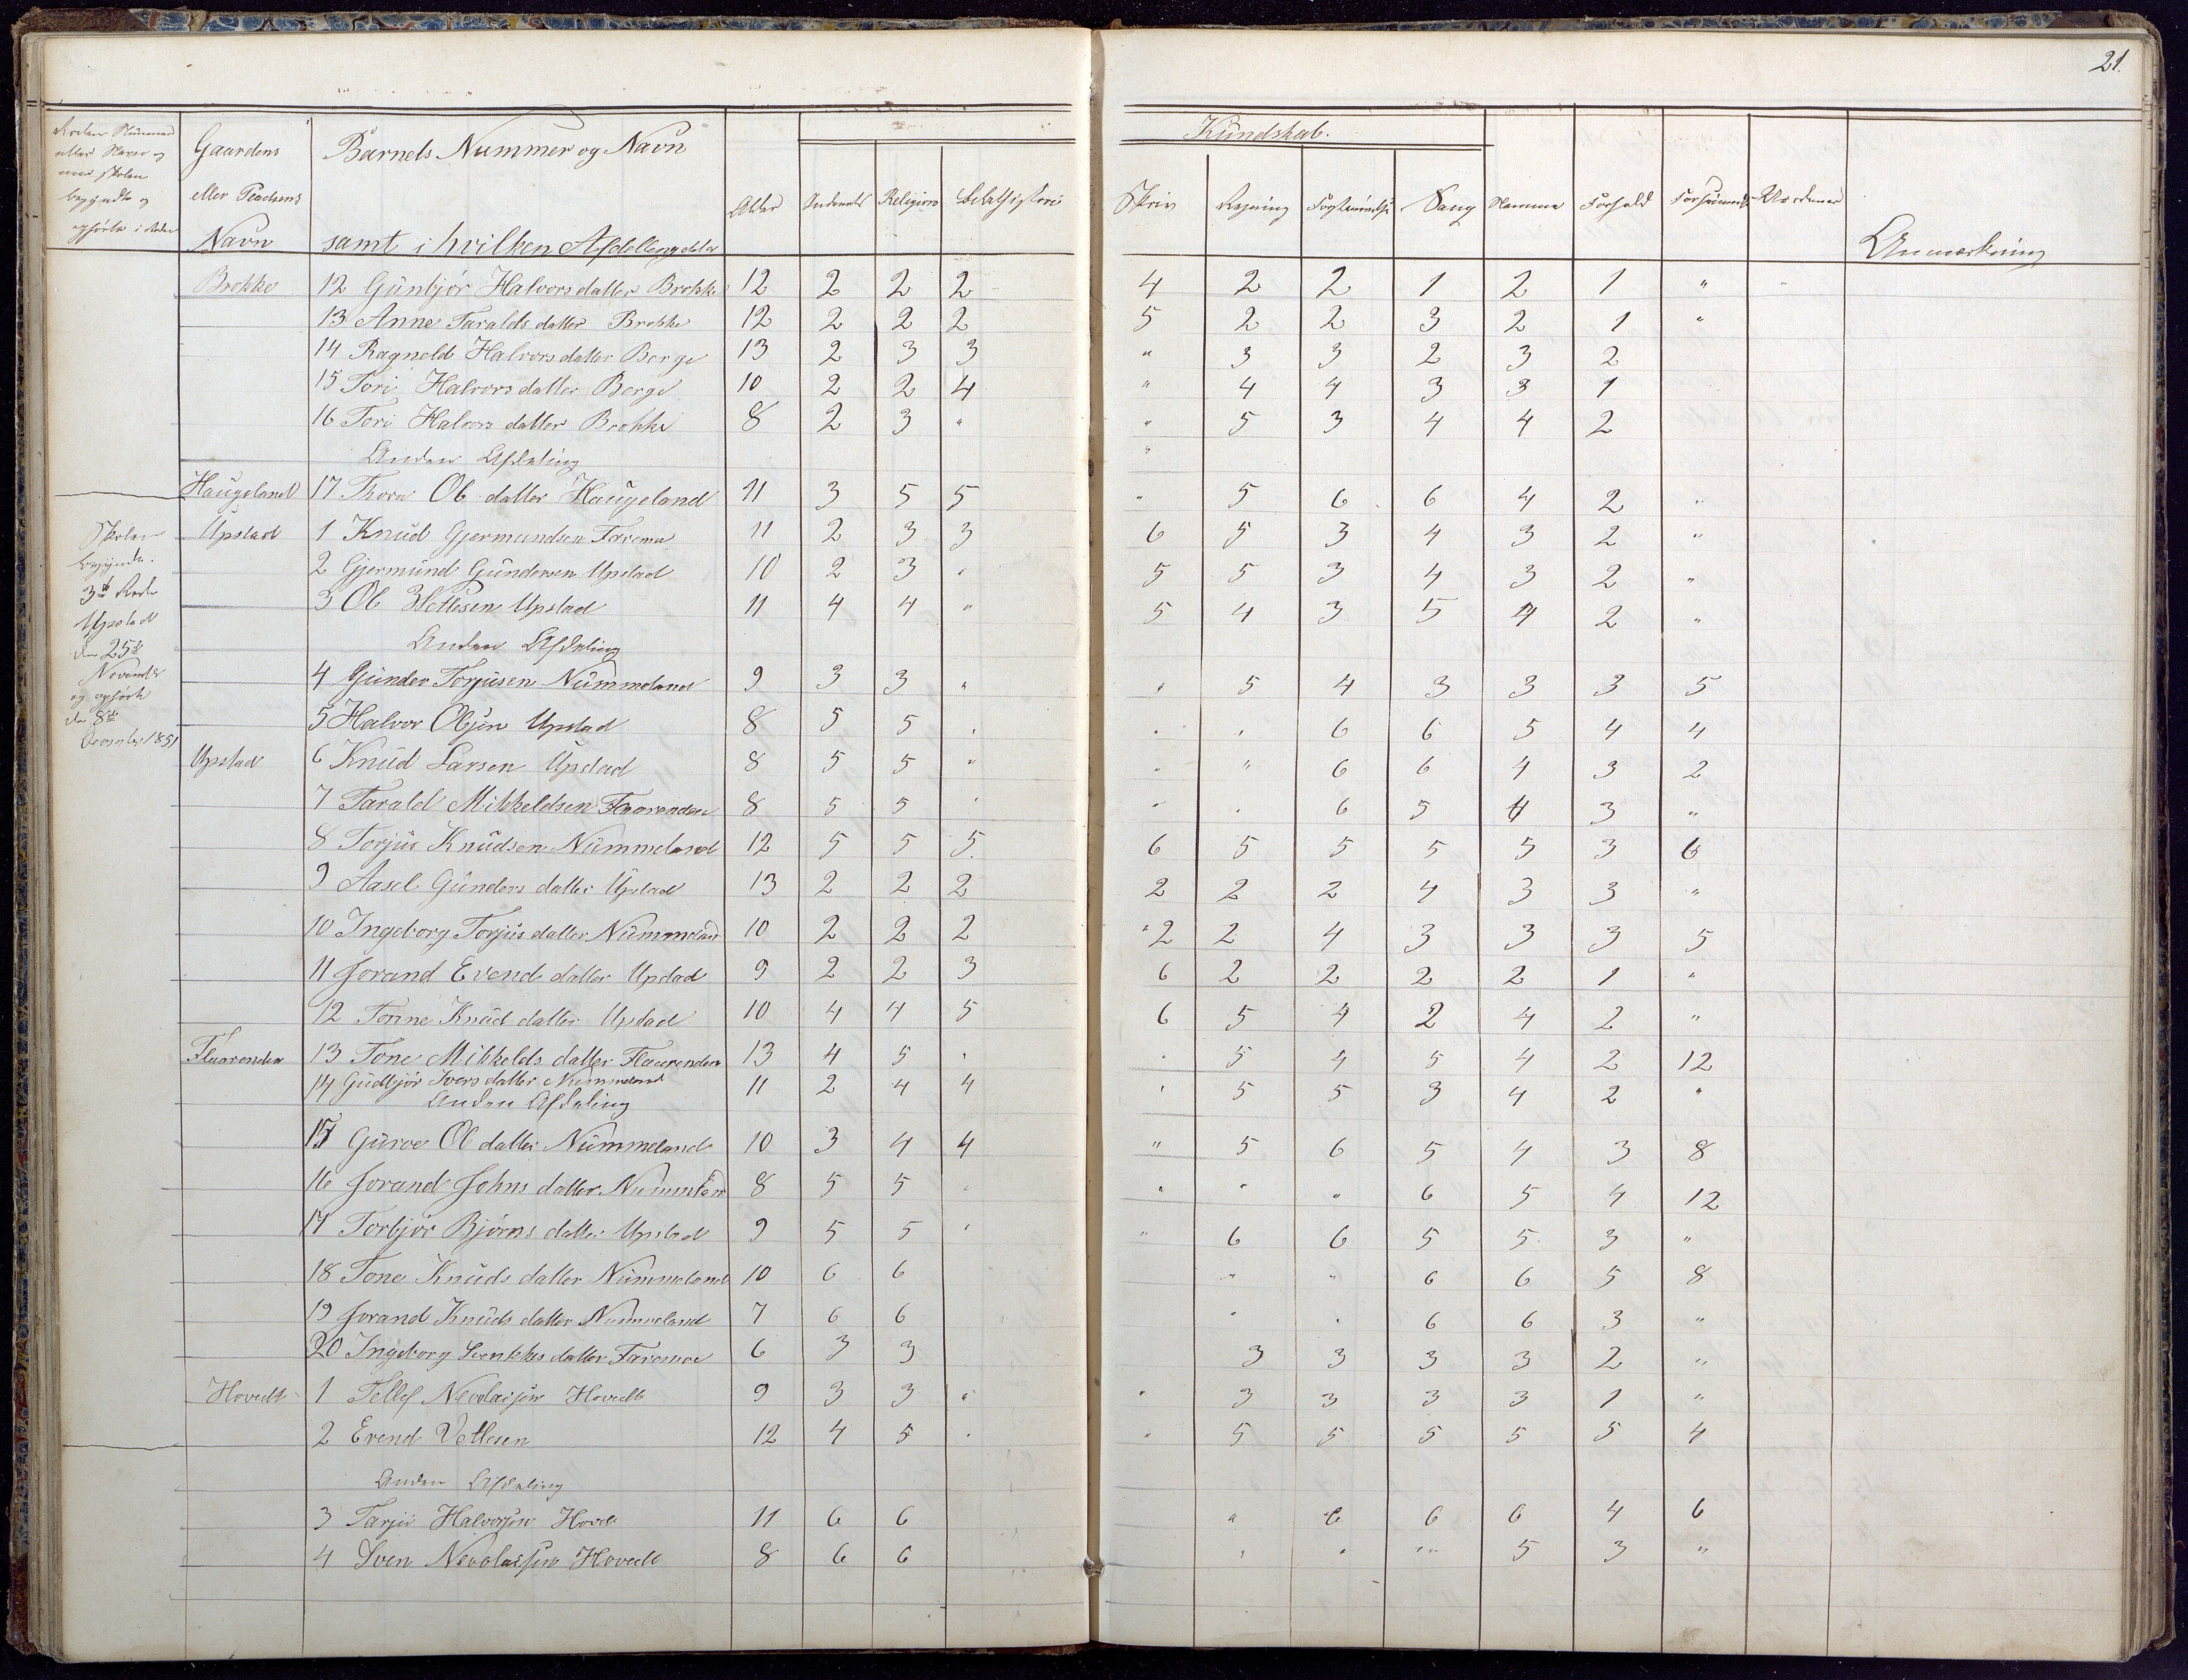 21.
Gaardens
eller Pladsens
Navn
Barnets Nummer og Navn
samt i hvilken Afdelling
Alder Religion
Kundskab.
Skriv Regning Sang Nemme Forhold
Anmærkning
Brokke 12 Gunbjør Halvorsdatter Brokke 12 2 2 2 4 2 2 1 2 1 "
13 Anne Taraldsdatter Brokke 12 2 2 2 5 2 2 3 2 1 "
14 Ragneld Halvorsdatter Berge 13 2 3 3 " 3 3 2 3 2
15 Tori Halvorsdatter Berge 10 2 2 4 " 4 4 3 3 1
16 Tori Halvorsdatter Brokke 8 2 3 " " 5 3 4 4 2
Anden Afdeling "
Haugeland 17 Thora Ols datter Haugeland 11 3 5 5 " 5 6 6 4 2 "
Upstad 1 Knud Gjermundsen Faremo 11 2 3 3 6 5 3 4 3 2 "
2 Gjermund Gundersen Upstad 10 2 3 " 5 5 3 4 3 2 "
3 Ole Wetlesen Upstad 11 4 4 " 5 4 3 5 4 2 "
Skolen
begyndte
3de Rode
Upstad
den 25de
November
og ophørte
den 8de
December 1851
Anden Afdeling
4 Gunder Torjusen Nummeland 9 3 3 " " 5 4 3 3 3 5
5 Halvor Olsen Upstad 8 5 5 " " " 6 6 5 4 4
Upstad 6 Knud Larsen Upstad 8 5 5 " " " 6 6 4 3 2
7 Tarald Mikkeldsen Flaarenden 8 5 5 " " " 6 5 4 3 "
8 Torjus Knudsen Nummeland 12 5 5 5. 6 5 5 5 5 3 6
9 Aasel Gunders datter Upstad 13 2 2 2 2 2 2 4 3 3 "
10 Ingeborg Torjusdatter Nummeland 10 2 2 2 2 2 4 3 3 3 5
11 Jorand Evends datter Upstad 9 2 2 3 6 2 2 2 2 1 "
12 Tonne Knuds datter Upstad 10 4 4 5 6 5 4 2 4 2 "
Flaarenden 13 Tone Mikkelds datter Flaarenden 13 4 5 " " 5 4 5 4 2 12
14 Gudbjør Ivers datter Nummeland 11 2 4 4 " 5 5 3 4 2 "
Anden Afdeling
15 Gurve Ols datter Nummeland 10 3 4 4 " 5 6 5 4 3 8
16 Jorand Johns datter 8 5 5 " " " " 6 5 4 12
17 Torbjør Bjørns datter Upstad 9 5 5 " " 6 6 5 5 3 "
18 Tone Knuds datter Nummeland 10 6 6 " " 6 6 5 8
19 Jorand Knuds datter Nummeland 7 6 6 " " 6 6 3 "
20 Ingeborg datter Faremoe 6 3 3 3 3 3 3 2 "
Hovedt 1 Tellef Nevolaisen Hovedt 9 3 3 " " 3 3 3 3 1 "
2 Evend Vetlesen 12 4 5 " " 5 5 5 5 5 4
Anden Afdeling
3 Tarjei Halvorsen Hovet 11 6 6 " 6 6 6 4 6
4 Sven Nevolaisen Hovedt 8 6 6 " " " 5 3 "